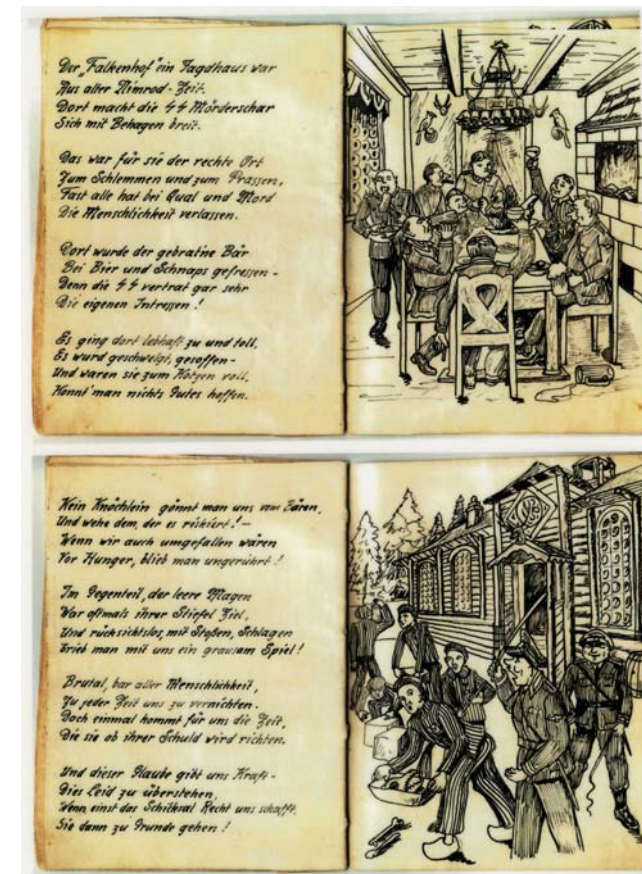 Der „Falkenhof" ein Jagdhaus war
Aus alter Nimrod-Zeit.
Dort macht die ᛋᛋ Mörderschar
Sich mit Behagen breit.
Das war für sie der rechte Ort
Zum Schlemmen und zum Prassen,
Fast alle hat bei Qual und Mord
Die Menschlichkeit verlassen.
Dort wurde der gebratne Bär
Bei Bier und Schnaps gefressen -
Denn die ᛋᛋ vertrat gar sehr
Die eigenen Intressen!
Es ging dort lebhaft zu und toll,
Es wurd geschwelgt, gesoffen -
Und waren sie zum Kotzen voll,
Konnt' man nichts Gutes hoffen.
Kein Knöchlein gönnt man uns vom Bären,
Und wehe dem, der es riskiert! -
Wenn wir auch umgefallen wären
Vor Hunger, blieb man ungerührt!
Im Gegenteil, der leere Magen
War oftmals ihrer Stiefel Ziel,
Und rücksichtslos, mit Stoßen, Schlagen
Trieb man mit uns ein grausam Spiel!
Brutal, bar aller Menschlichkeit,
Zu jeder Zeit uns zu vernichten.
Doch einmal kommt für uns die Zeit,
Die sie ob ihrer Schuld wird richten.
Und dieser Glaube gibt uns Kraft -
Dies Leid zu überstehen,
Wenn einst das Schicksal Recht uns schafft,
Sie dann zu Grunde gehen!